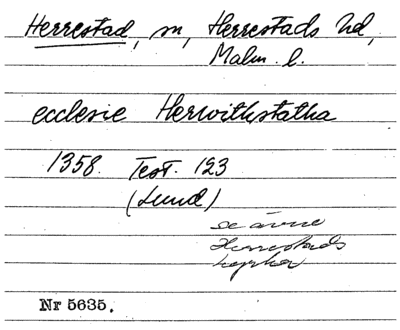 Herrestad, sn, Herrestads hd,
Malm. l.
ecclesie Herwithstatha
1358. Test. 123
(Lund)
se även
Herrestads
kyrka
Nr 5635.